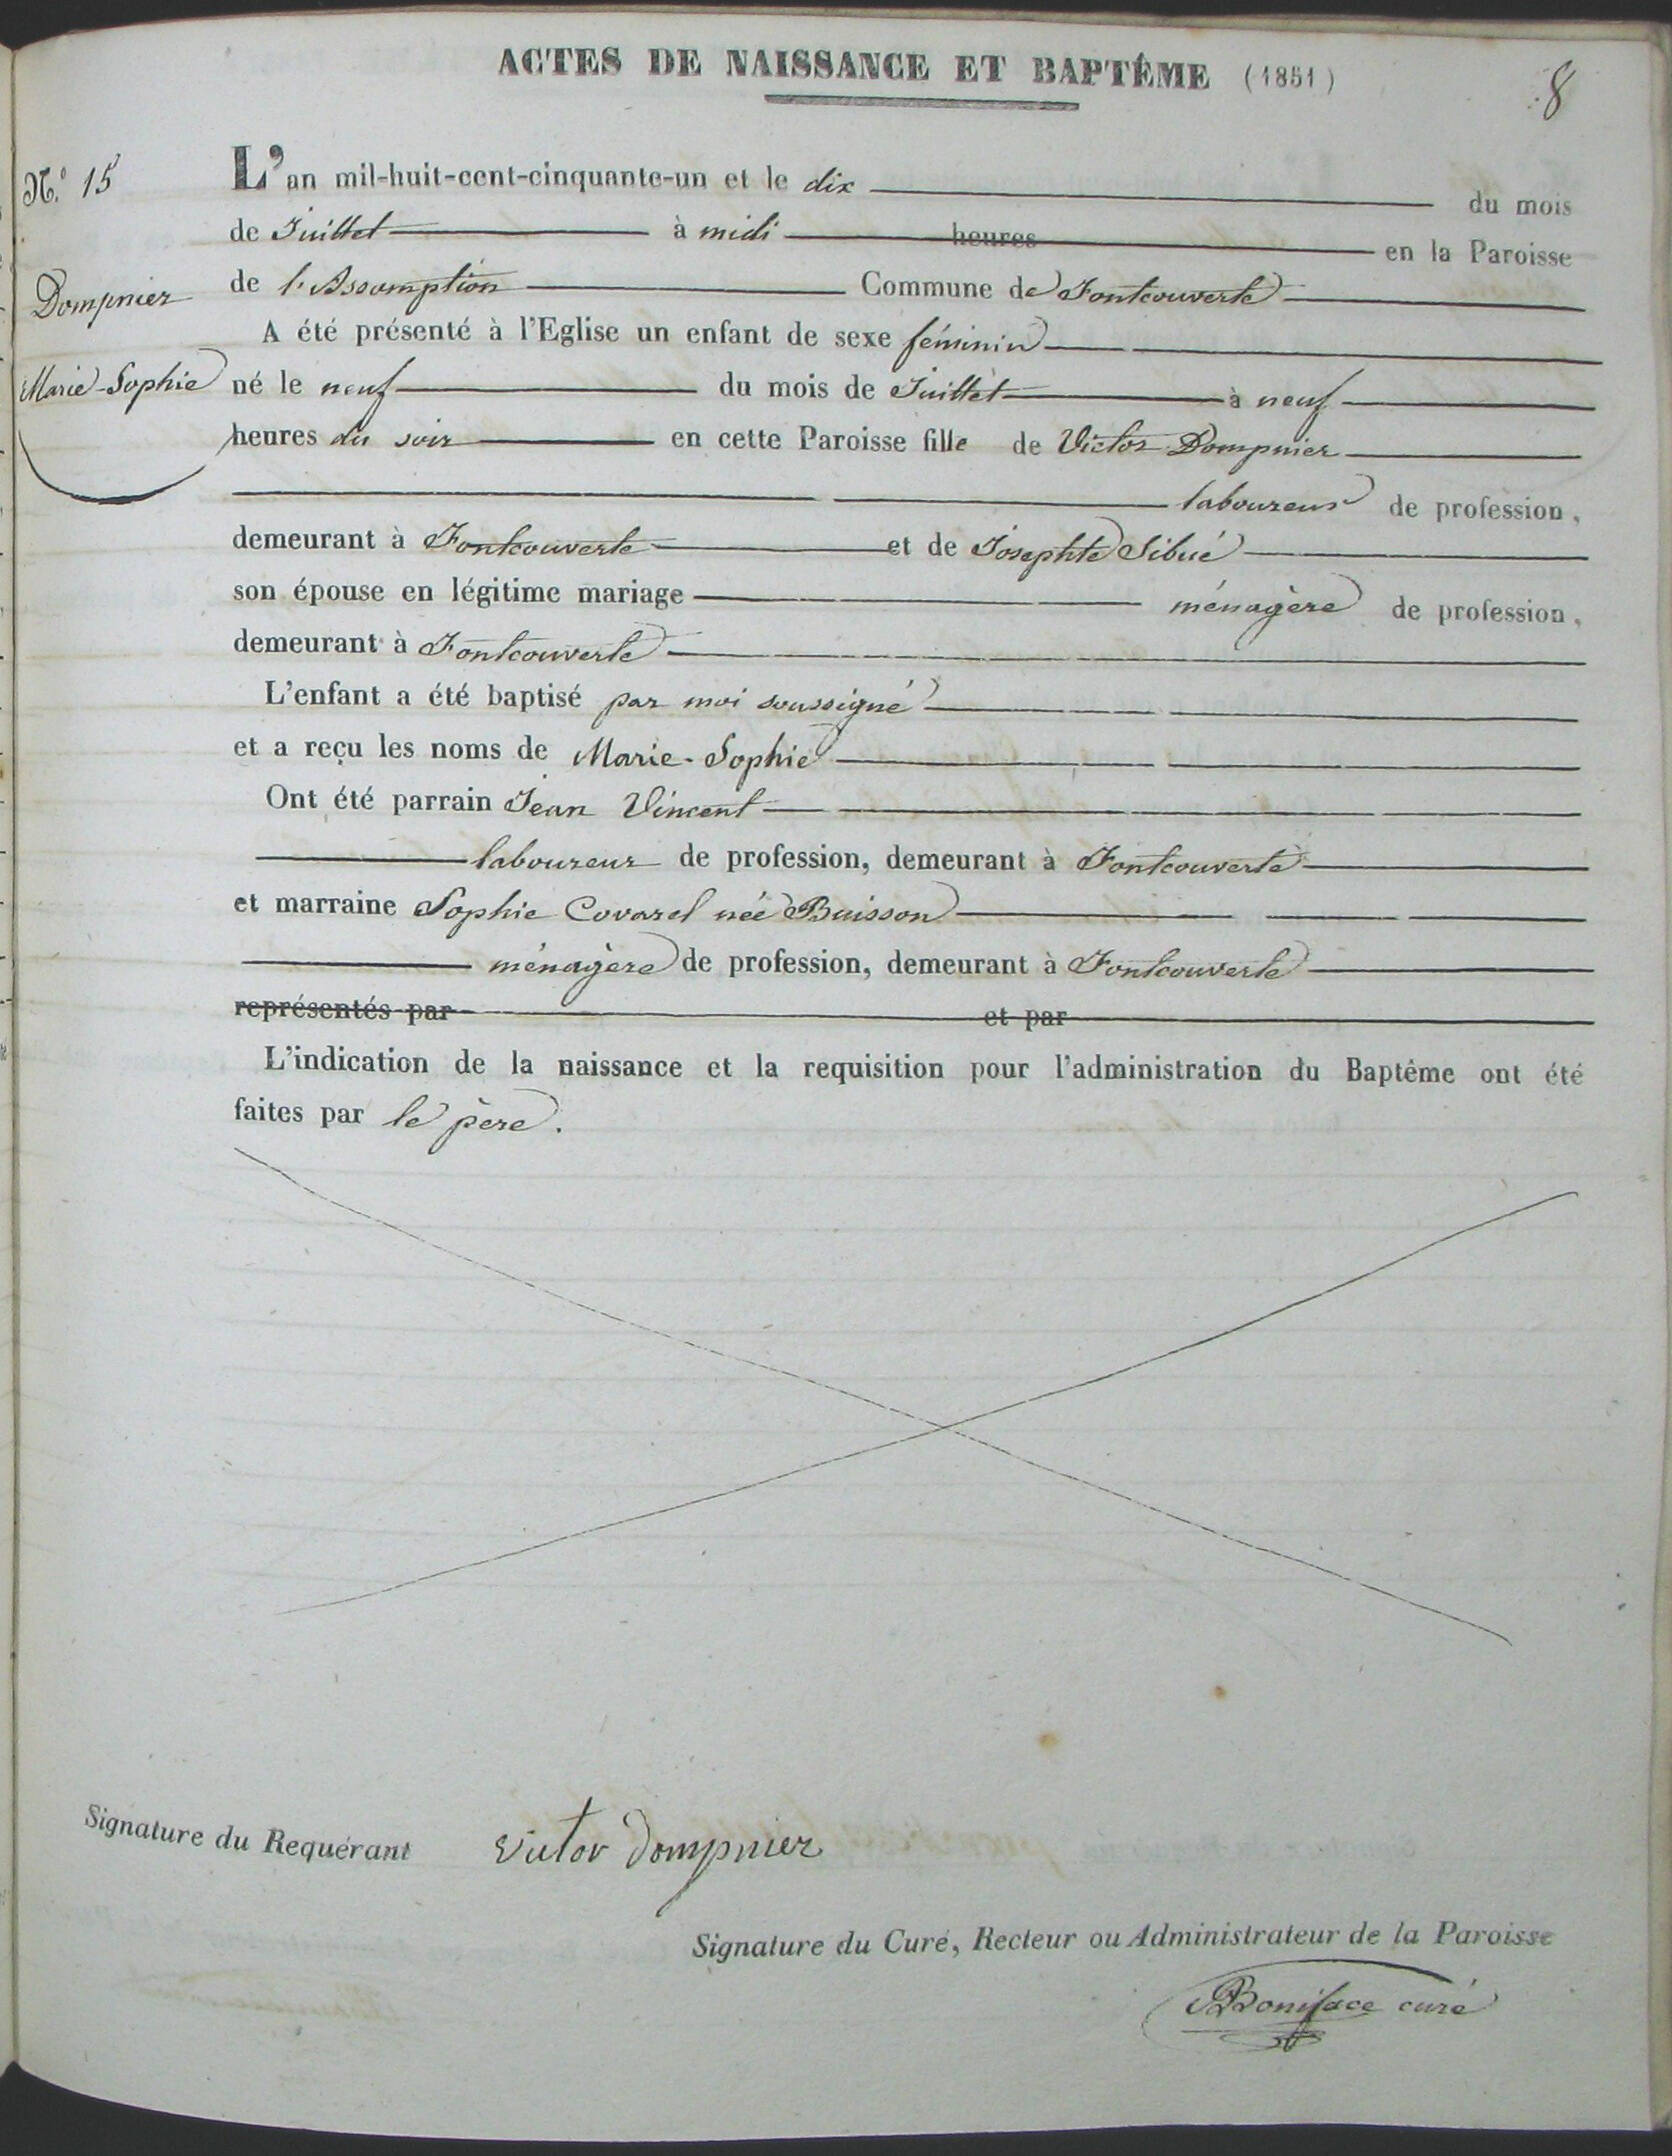 ACTES DE NAISSANCE ET BAPTÊME (1851)
8
N.º 15
L'an mil-huit-cent-cinquante-un et le dix du mois
de Juillet à midi heures en la Paroisse
Dompnier
de l'Assomption Commune de Fontcouverte
A été présenté à l'Eglise un enfant de sexe féminin
Marie-Sophie
né le neuf du mois de Juillet à neuf
heures du soir en cette Paroisse fille de Victor Dompnier
laboureur de profession,
demeurant à Fontcouverte et de Josephte Sibué
son épouse en légitime mariage ménagère de profession,
demeurant à Fontcouverte
L'enfant a été baptisé par moi soussigné
et a reçu les noms de Marie-Sophie
Ont été parrain Jean Vincent
laboureur de profession, demeurant à Fontcouverte
et marraine Sophie Covarel née Buisson
ménagère de profession, demeurant à Fontcouverte
représentés par et par
L'indication de la naissance et la requisition pour l'administration du Baptême ont été
faites par le père.
Signature du Requérant Victor Dompnier
Signature du Curé, Recteur ou Administrateur de la Paroisse
Boniface curé